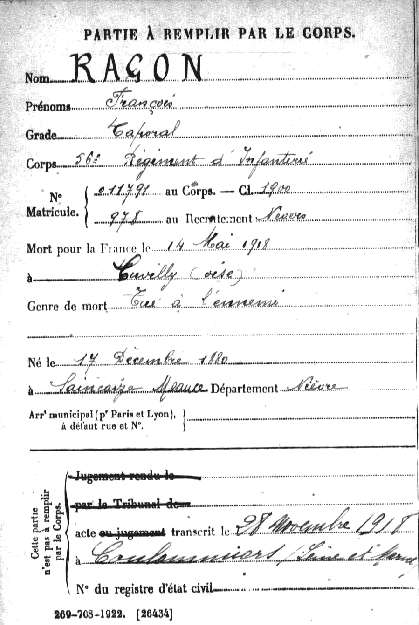 PARTIE À REMPLIR PAR LE CORPS.
Nom RAGON
Prénoms François
Grade Caporal
Corps 56e Régiment d'Infanterie
N° Matricule. { 011791 au Corps. — Cl. 1900
978 au Recrutement Nevers
Mort pour la France le 14 Mai 1918
à Cuvilly (oise)
Genre de mort Tué à l'ennemi
Né le 17 Décembre 1880
à Saincaize Meauce Département Nièvre
Arrt municipal (pr Paris et Lyon), à défaut rue et N°.
Cette partie n'est pas à remplir par le Corps.
Jugement rendu le
par le Tribunal de
acte ou jugement transcrit le 28 Novembre 1918
à Coulommiers (Seine et Marne
N° du registre d'état civil
269-708-1922. [26434]